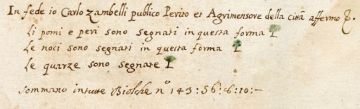 In fede io Carlo Zambelli publico Perito et Agrimensore della città affermo &c.
Li pomi e peri sono segnati in questa forma
Le noci sono segnati in questa forma
Le quarze sono segnate
Sommano in tutte Biolche n.º 143:56:6:10:-